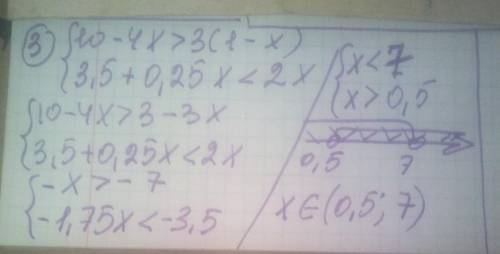 ③ {10-4x>3(1-x)
{3,5+0,25x<2x
{10-4x>3-3x
{3,5+0,25x<2x
{-x>-7
{-1,75x<-3,5
{x<7
{x>0,5
0,5 7
x∈(0,5; 7)